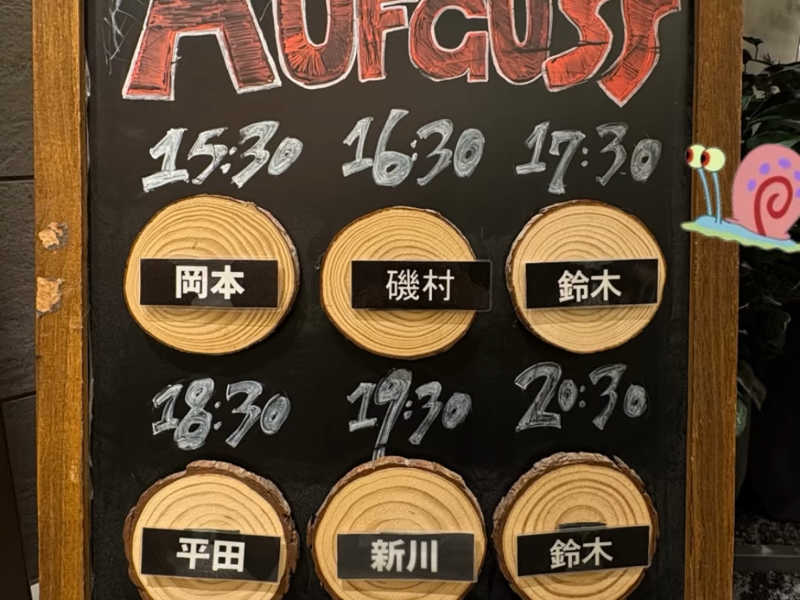 AUFGUSS
15:30 16:30 17:30
岡本 磯村 鈴木
18:30 19:30 20:30
平田 新川 鈴木